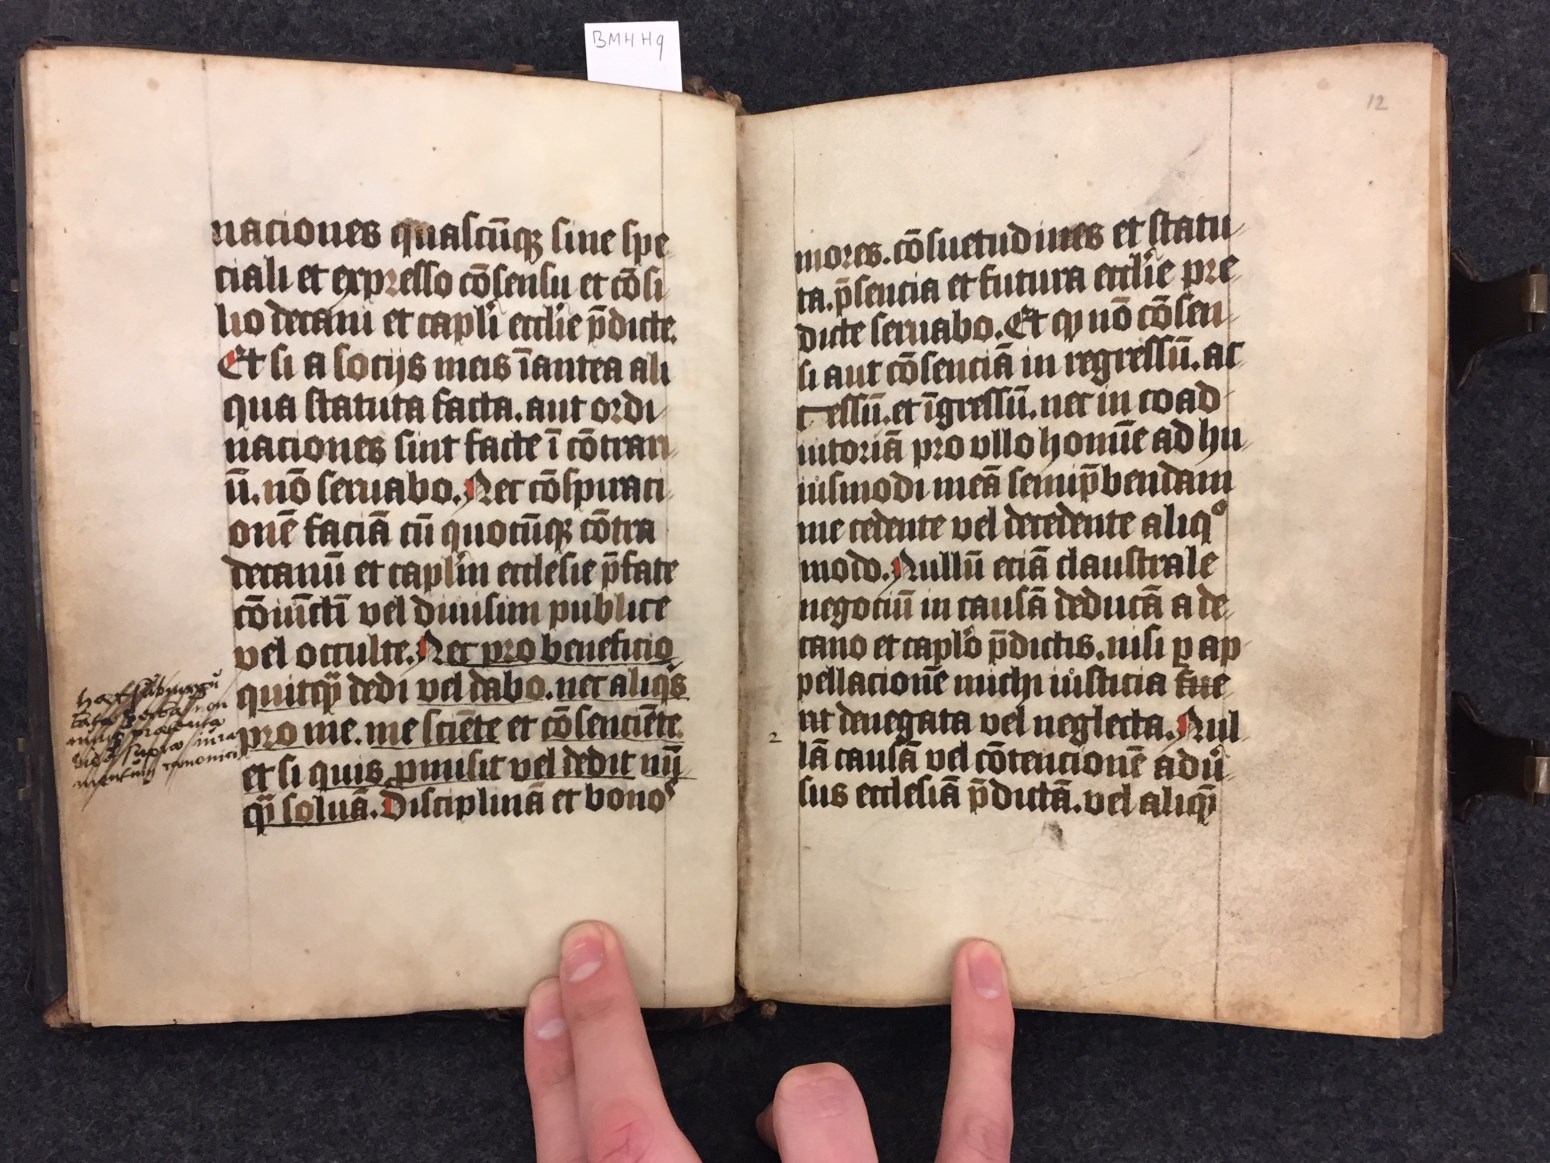 BM4H9
12
naciones quascūqꝫ sine spe
ciali et expresso cōsensu et cōsi
lio decani et capl̄i eccl̄ie p̄dicte.
Et si a socijs meis īantea ali
qua statuta facta. aut ordi
naciones sint facte ī cōtrari
ū. nō seruabo. Nec cōspiraci
onē faciā cū quocūqꝫ cōtra
decanū et capl̄m ecclesie p̄fate
cōiūctī vel diuisim publice
vel occulte. Nec pro beneficio
quitqꝫ dedi vel dabo. nec aliqs
pro me. me sciēte et cōsenciēte.
et si quis ꝓmisit vel dedit
soluā. Disciplinā et bonoꝰ
mores. cōsuetudines et statu
ta. p̄sencia et futura eccl̄ie pre
dicte seruabo. Et qꝫ nō cōsen
si aut cōsenciā in regressū. ac
cessū. et īgressū. nec in coad
iutoriā pro vllo homīe ad hu
iusmodi meā semip̄bendam
me cedente vel decedente aliqͦ
modo. Nullū eciā claustrale
negociū in causā deducā a de
cano et capl̄o p̄dictis. nisi ꝑ ap
pellacionē michi iusticia fue
rit denegata vel neglecta. Nul
lā causā vel cōtencionē adū
sus ecclesiā p̄dictā. vel aliqꝫ
2